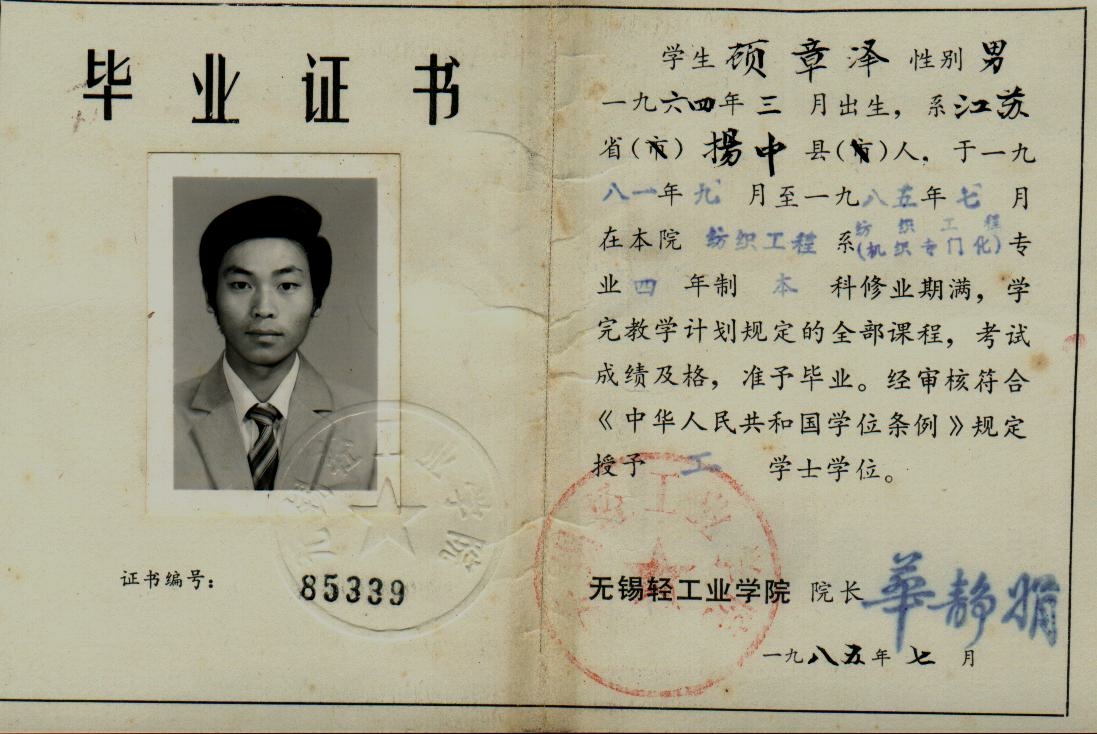 毕业证书
证书编号：
85339
学生顾章泽 性别男
一九六四年三 月出生，系江苏
省(市) 揚中 县(市)人，于一九
八一年九 月至一九八五年七 月
在本院 纺织工程 系纺织工程(机织专门化)专
业四 年制 本 科修业期满，学
完教学计划规定的全部课程，考试
成绩及格，准予毕业。经审核符合
《中华人民共和国学位条例》规定
授予 工 学士学位。
无锡轻工业学院 院长華静娟
一九八五年 七 月
无锡轻工业学院